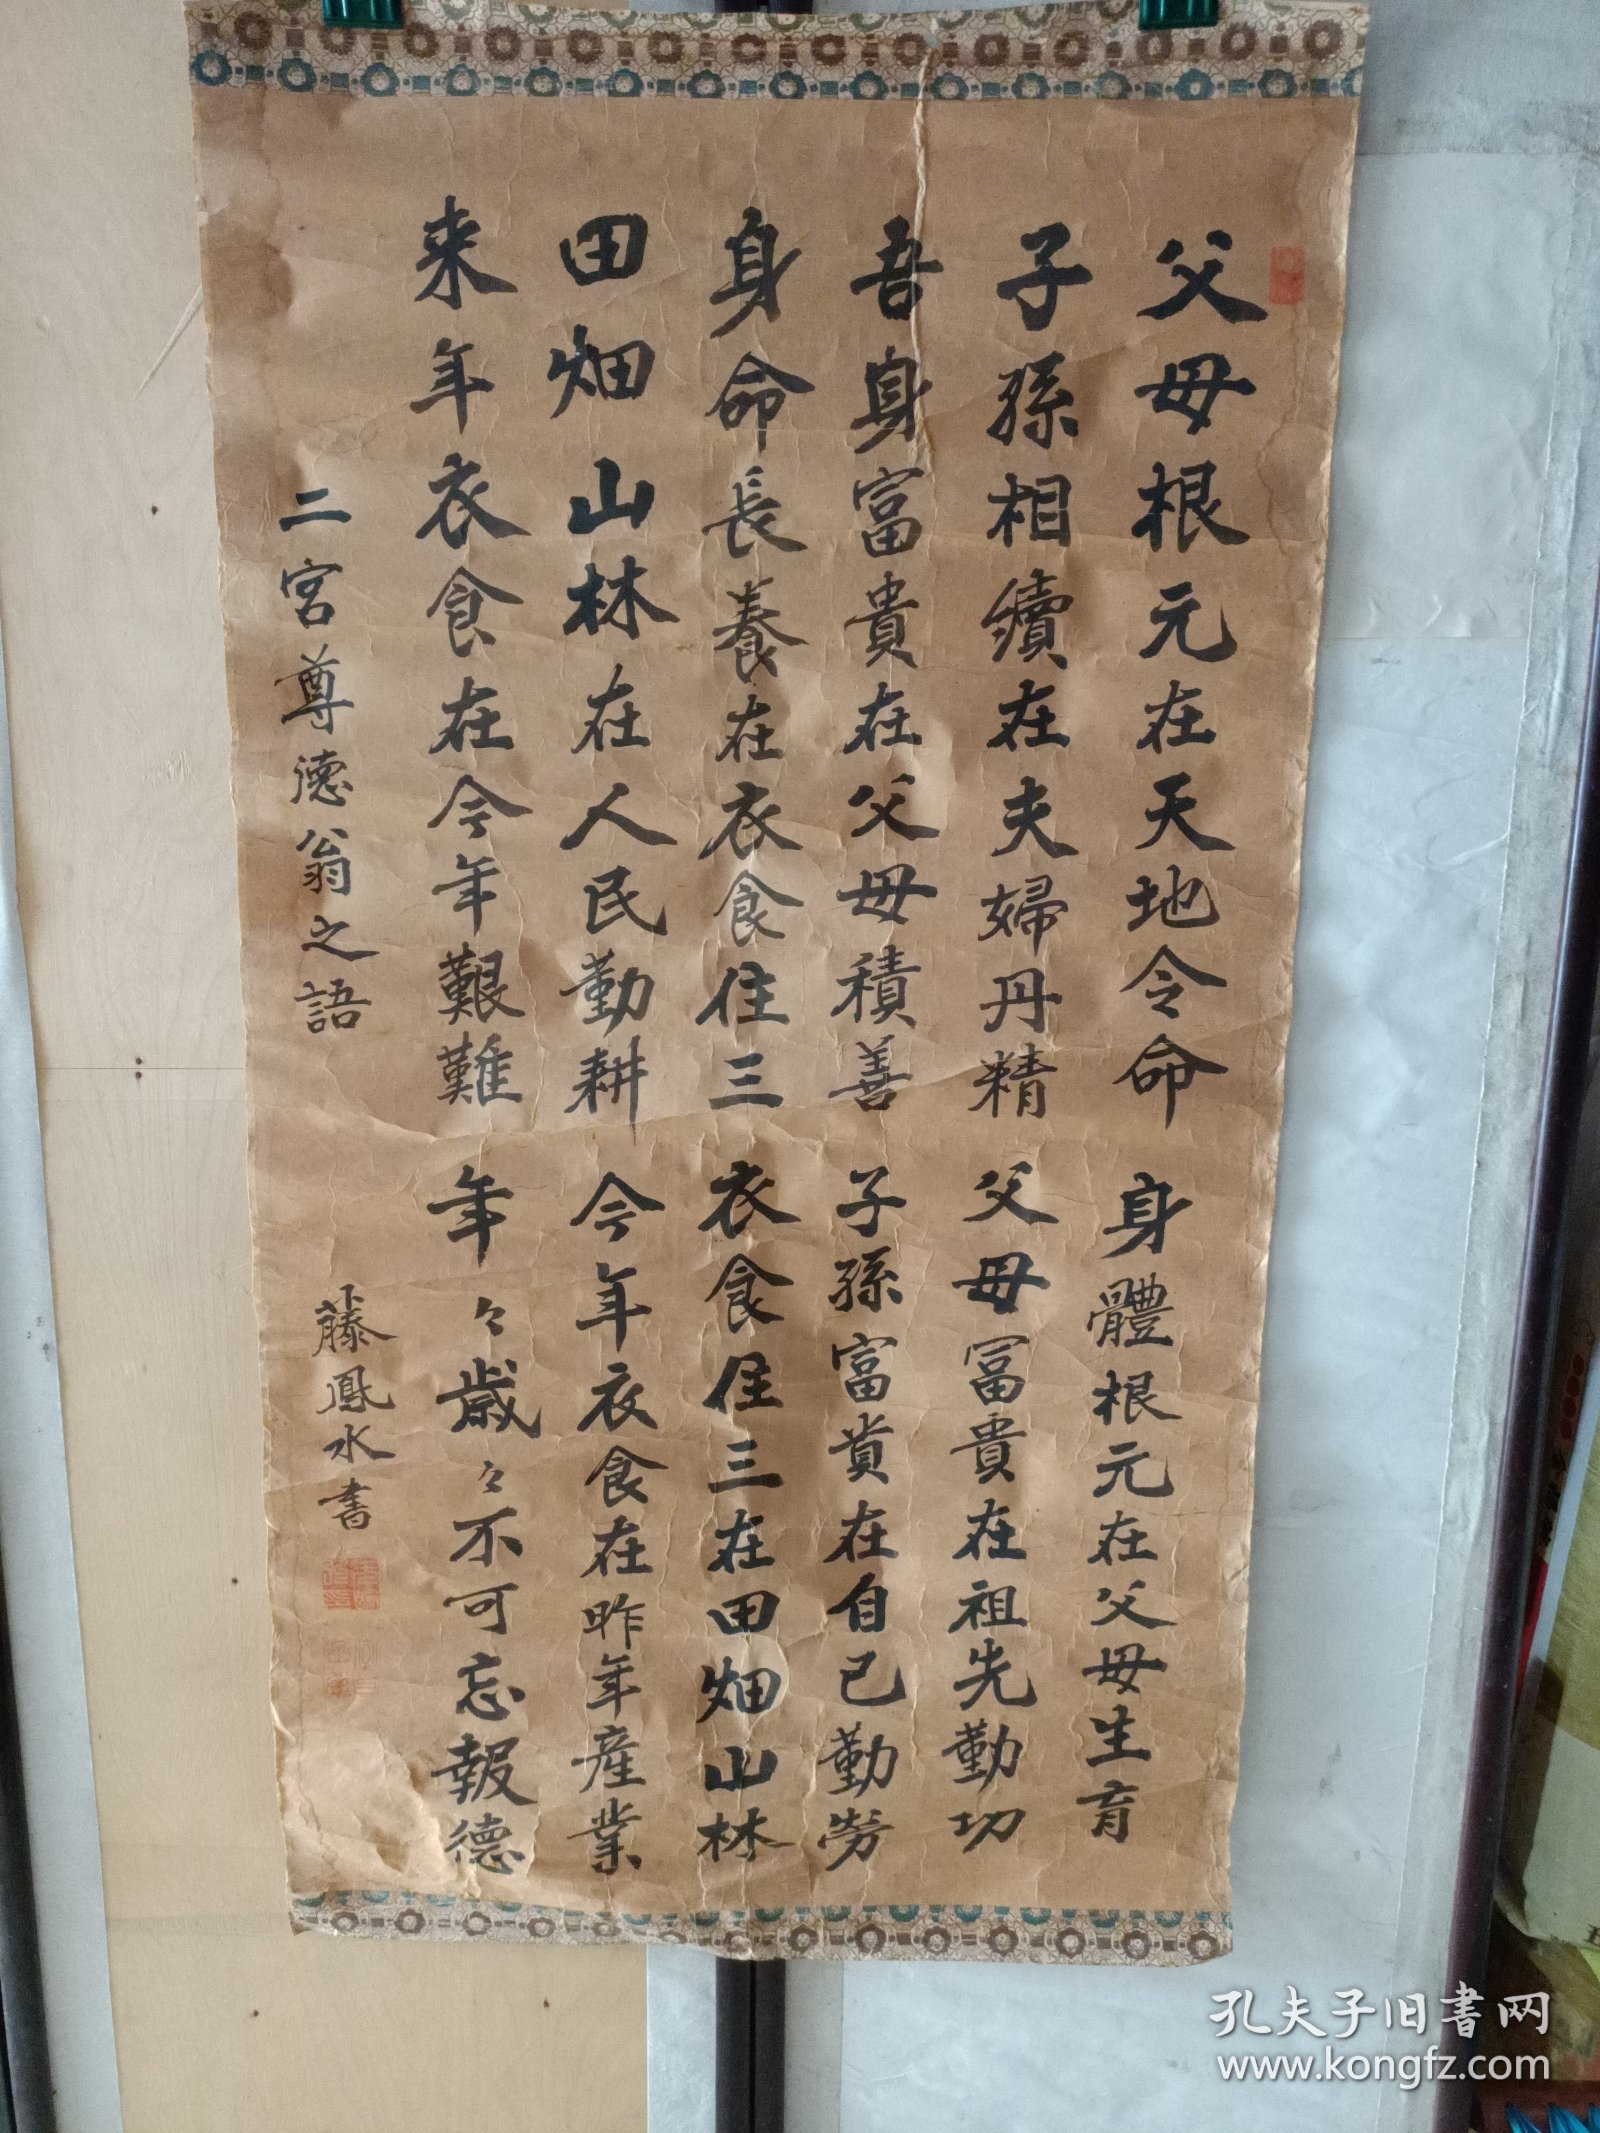 父母根元在天地令命 身體根元在父母生育
子孫相續在夫婦丹精 父母冨貴在祖先勤功
吾身富貴在父母積善 子孫富貴在自己勤勞
身命長養在衣食住三 衣食住三在田畑山林
田畑山林在人民勤耕 今年衣食在昨年産業
来年衣食在今年艱難 年々歳々不可忘報德
二宮尊德翁之語
藤鳳水書
孔夫子旧书网
www.kongfz.com